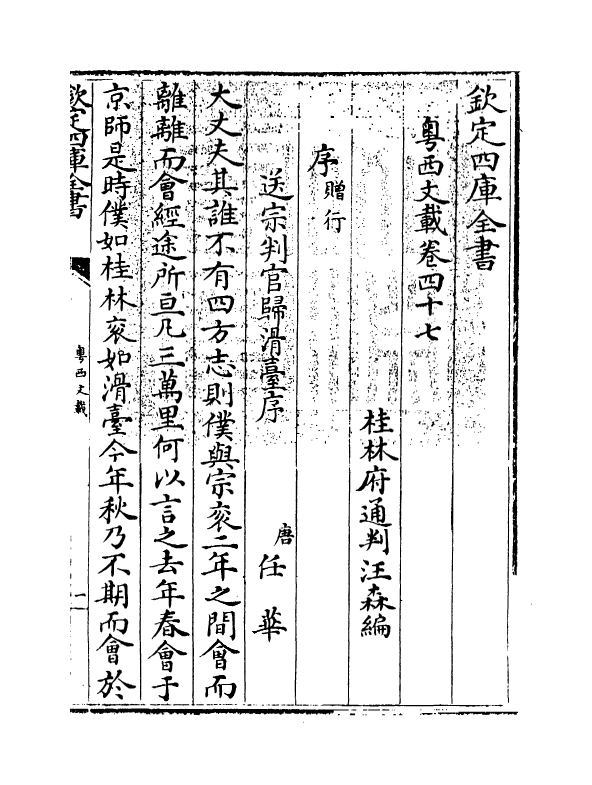 欽定四庫全書
粵西文載卷四十七
桂林府通判汪森編
序贈行
送宗判官歸滑臺序
唐任華
大丈夫其誰不有四方志則僕與宗衮二年之間會而
離離而會經途所亘凡三萬里何以言之去年春會于
京師是時僕如桂林衮如滑臺今年秋乃不期而會於
欽定四庫全書
粵西文載
一